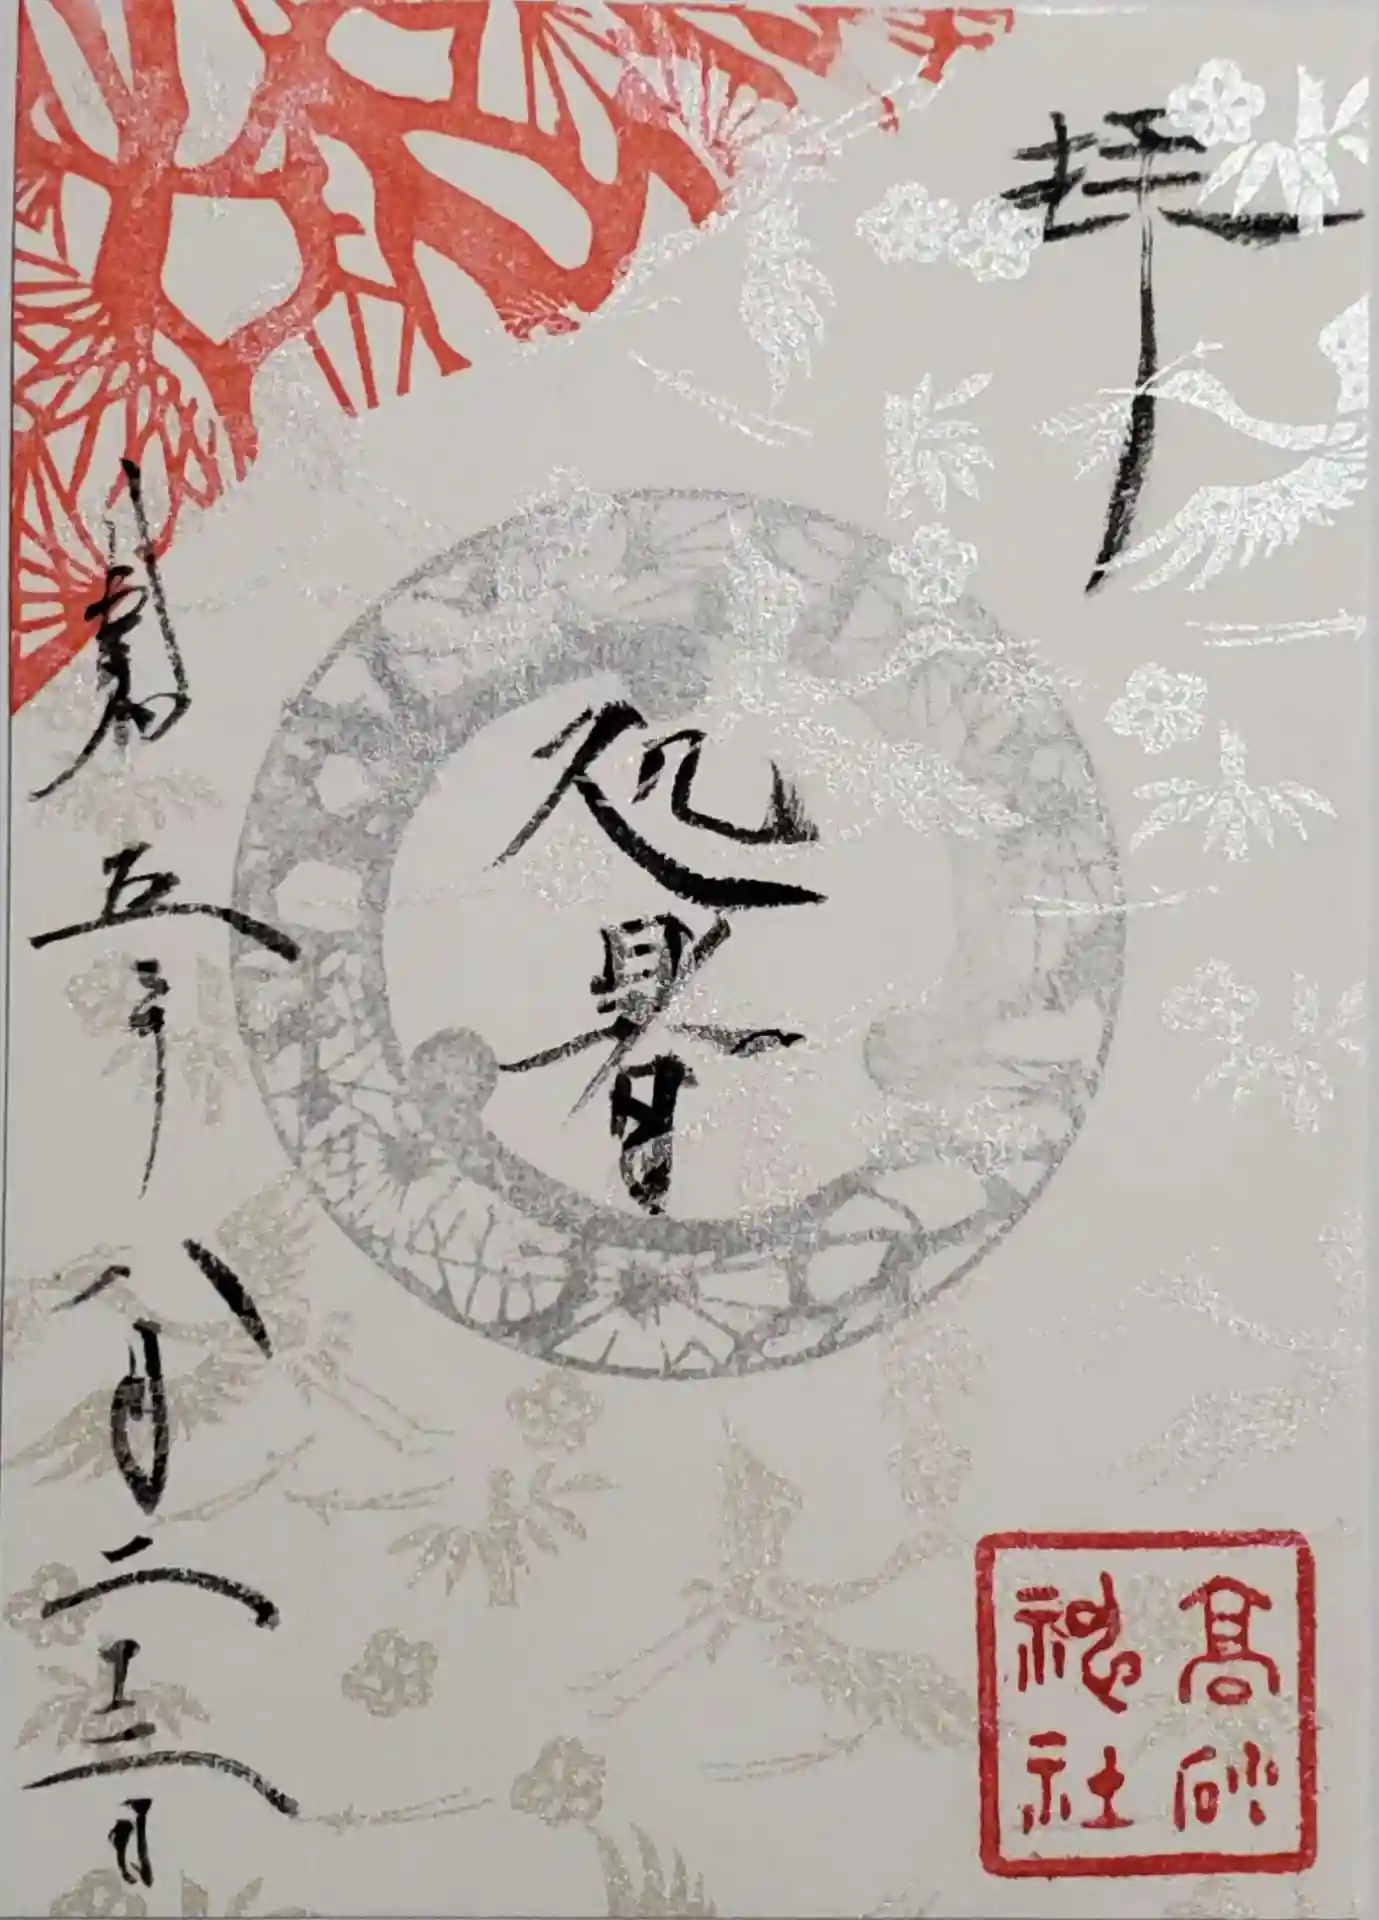 拝
処暑
令和五年
八月二十三日
高砂
神社